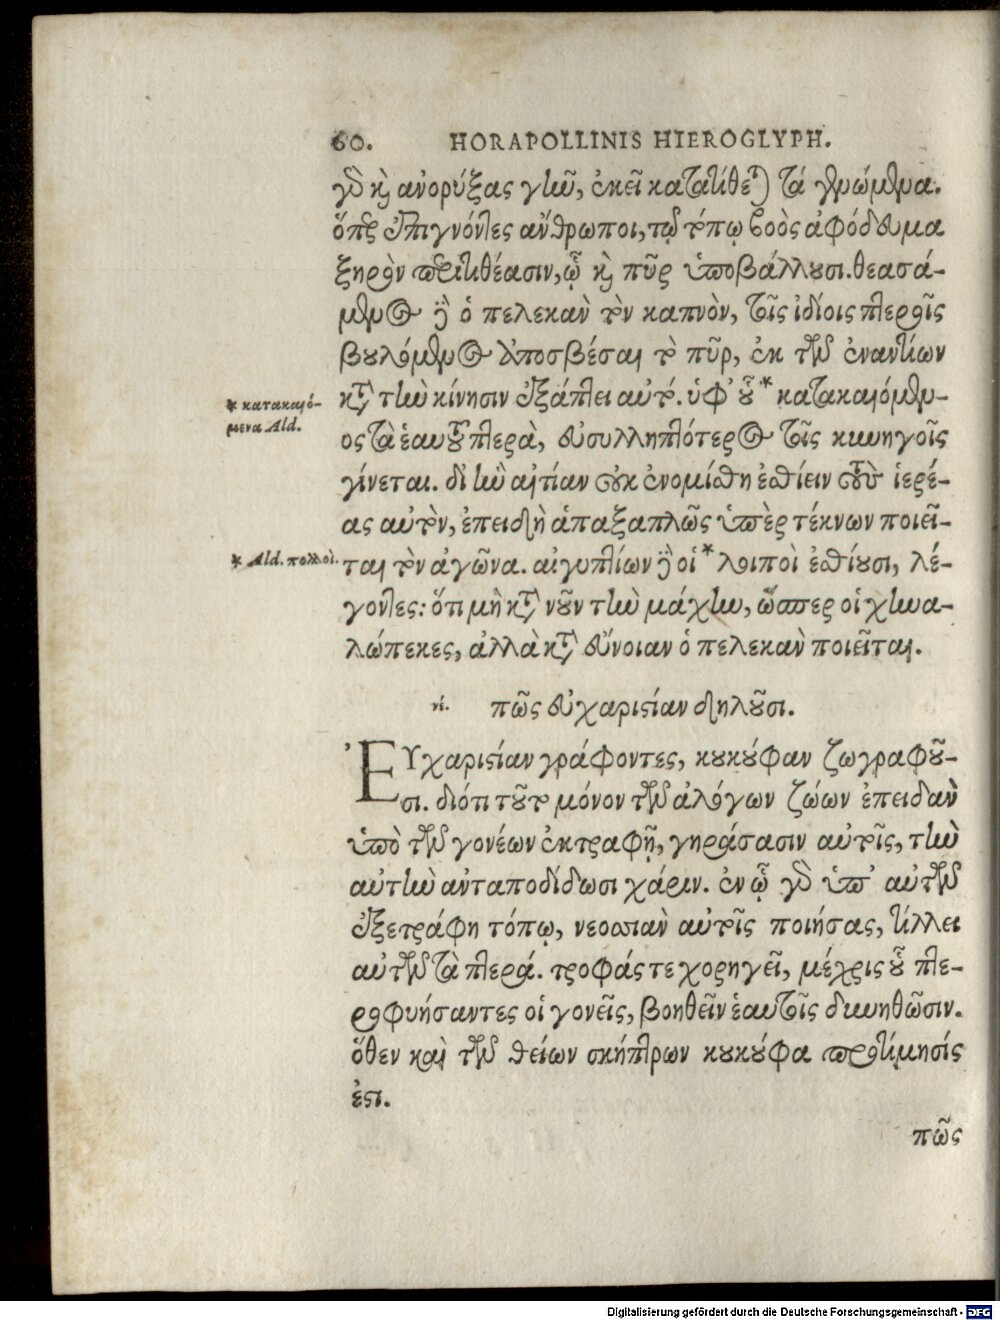 60. HORAPOLLINIS HIEROGLYPH.
γὸ κὶ ἀνορύξας γῆν, ἐκεῖ κατατίθεται τὰ γεννώμενα.
ὅπερ ἐπιγνόντες ἄνθρωποι, τῷ τόπῳ βοὸς ἀφόδευμα
ξηρὸν περιτιθέασιν, ᾧ καὶ πῦρ ὑποβάλλουσι. θεασά-
μενος δὲ ὁ πελεκὰν τὸν καπνὸν, τοῖς ἰδίοις πτεροῖς
βουλόμενος ἀποσβέσαι τὸ πῦρ, ἐκ τῶν ἐναντίων
κατὰ τὴν κίνησιν ἐξάπτει αὐτό. ὑφ' οὗ * κατακαιόμεν-
ος τὰ ἑαυτοῦ πτερὰ, εὐσυλληπτότερος τοῖς κυνηγοῖς
γίνεται. δι' ἣν αἰτίαν οὐκ ἐνομίσθη ἐσθίειν τοὺς ἱερέ-
ας αὐτὸν, ἐπειδὴ ἁπαξαπλῶς ὑπὲρ τέκνων ποιεῖ-
ται τὸν ἀγῶνα. αἰγυπτίων δὲ οἱ * λοιποὶ ἐσθίουσι, λέ-
γοντες: ὅτι μὴ κατὰ νοῦν τὴν μάχην, ὥσπερ οἱ χηνα-
λώπεκες, ἀλλὰ κατὰ εὔνοιαν ὁ πελεκὰν ποιεῖται.
* κατακαιό-
μενα Ald.
* Ald. πολλοὶ.
νί. πῶς εὐχαριστίαν δηλοῦσι.
ἘΥχαριστίαν γράφοντες, κουκούφαν ζωγραφοῦ-
σι. διότι τοῦτο μόνον τῶν ἀλόγων ζώων ἐπειδὰν
ὑπὸ τῶν γονέων ἐκτραφῇ, γηράσασιν αὐτοῖς, τὴν
αὐτὴν ἀνταποδίδωσι χάριν. ἐν ᾧ γὸ ὑπ' αὐτῶν
ἐξετράφη τόπῳ, νεοσσιὰν αὐτοῖς ποιήσας, τίλλει
αὐτῶν τὰ πτερά. τροφάς τε χορηγεῖ, μέχρις οὗ πτε-
ροφυήσαντες οἱ γονεῖς, βοηθεῖν ἑαυτοῖς δυνηθῶσιν.
ὅθεν καὶ τῶν θείων σκήπτρων κουκούφα προτίμησίς
ἐστι.
πῶς
Digitalisierung gefördert durch die Deutsche Forschungsgemeinschaft - DFG